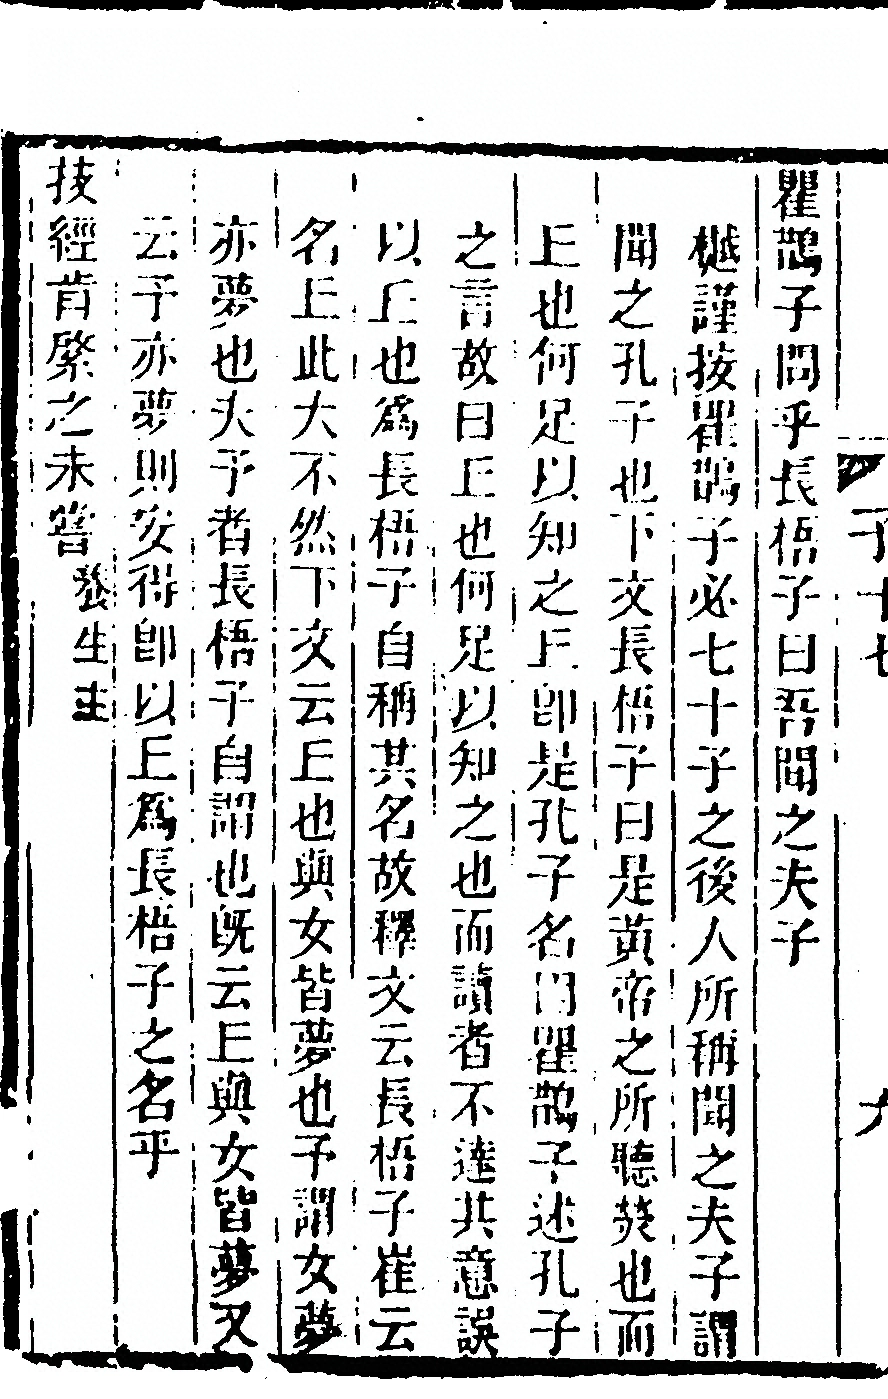 子十七
九
瞿鵲子問乎長梧子曰吾聞之夫子
樾謹按瞿鵲子必七十子之後人所稱聞之夫子謂
聞之孔子也下文長梧子曰是黃帝之所聽熒也而
丘也何足以知之丘卽是孔子名因瞿鵲子述孔子
之言故曰丘也何足以知之也而讀者不達其意誤
以丘也爲長梧子自稱其名故釋文云長梧子崔云
名丘此大不然下文云丘也與女皆夢也予謂女夢
亦夢也夫予者長梧子自謂也旣云丘與女皆夢又
云予亦夢則安得卽以丘爲長梧子之名乎
技經肯綮之未嘗 養生主